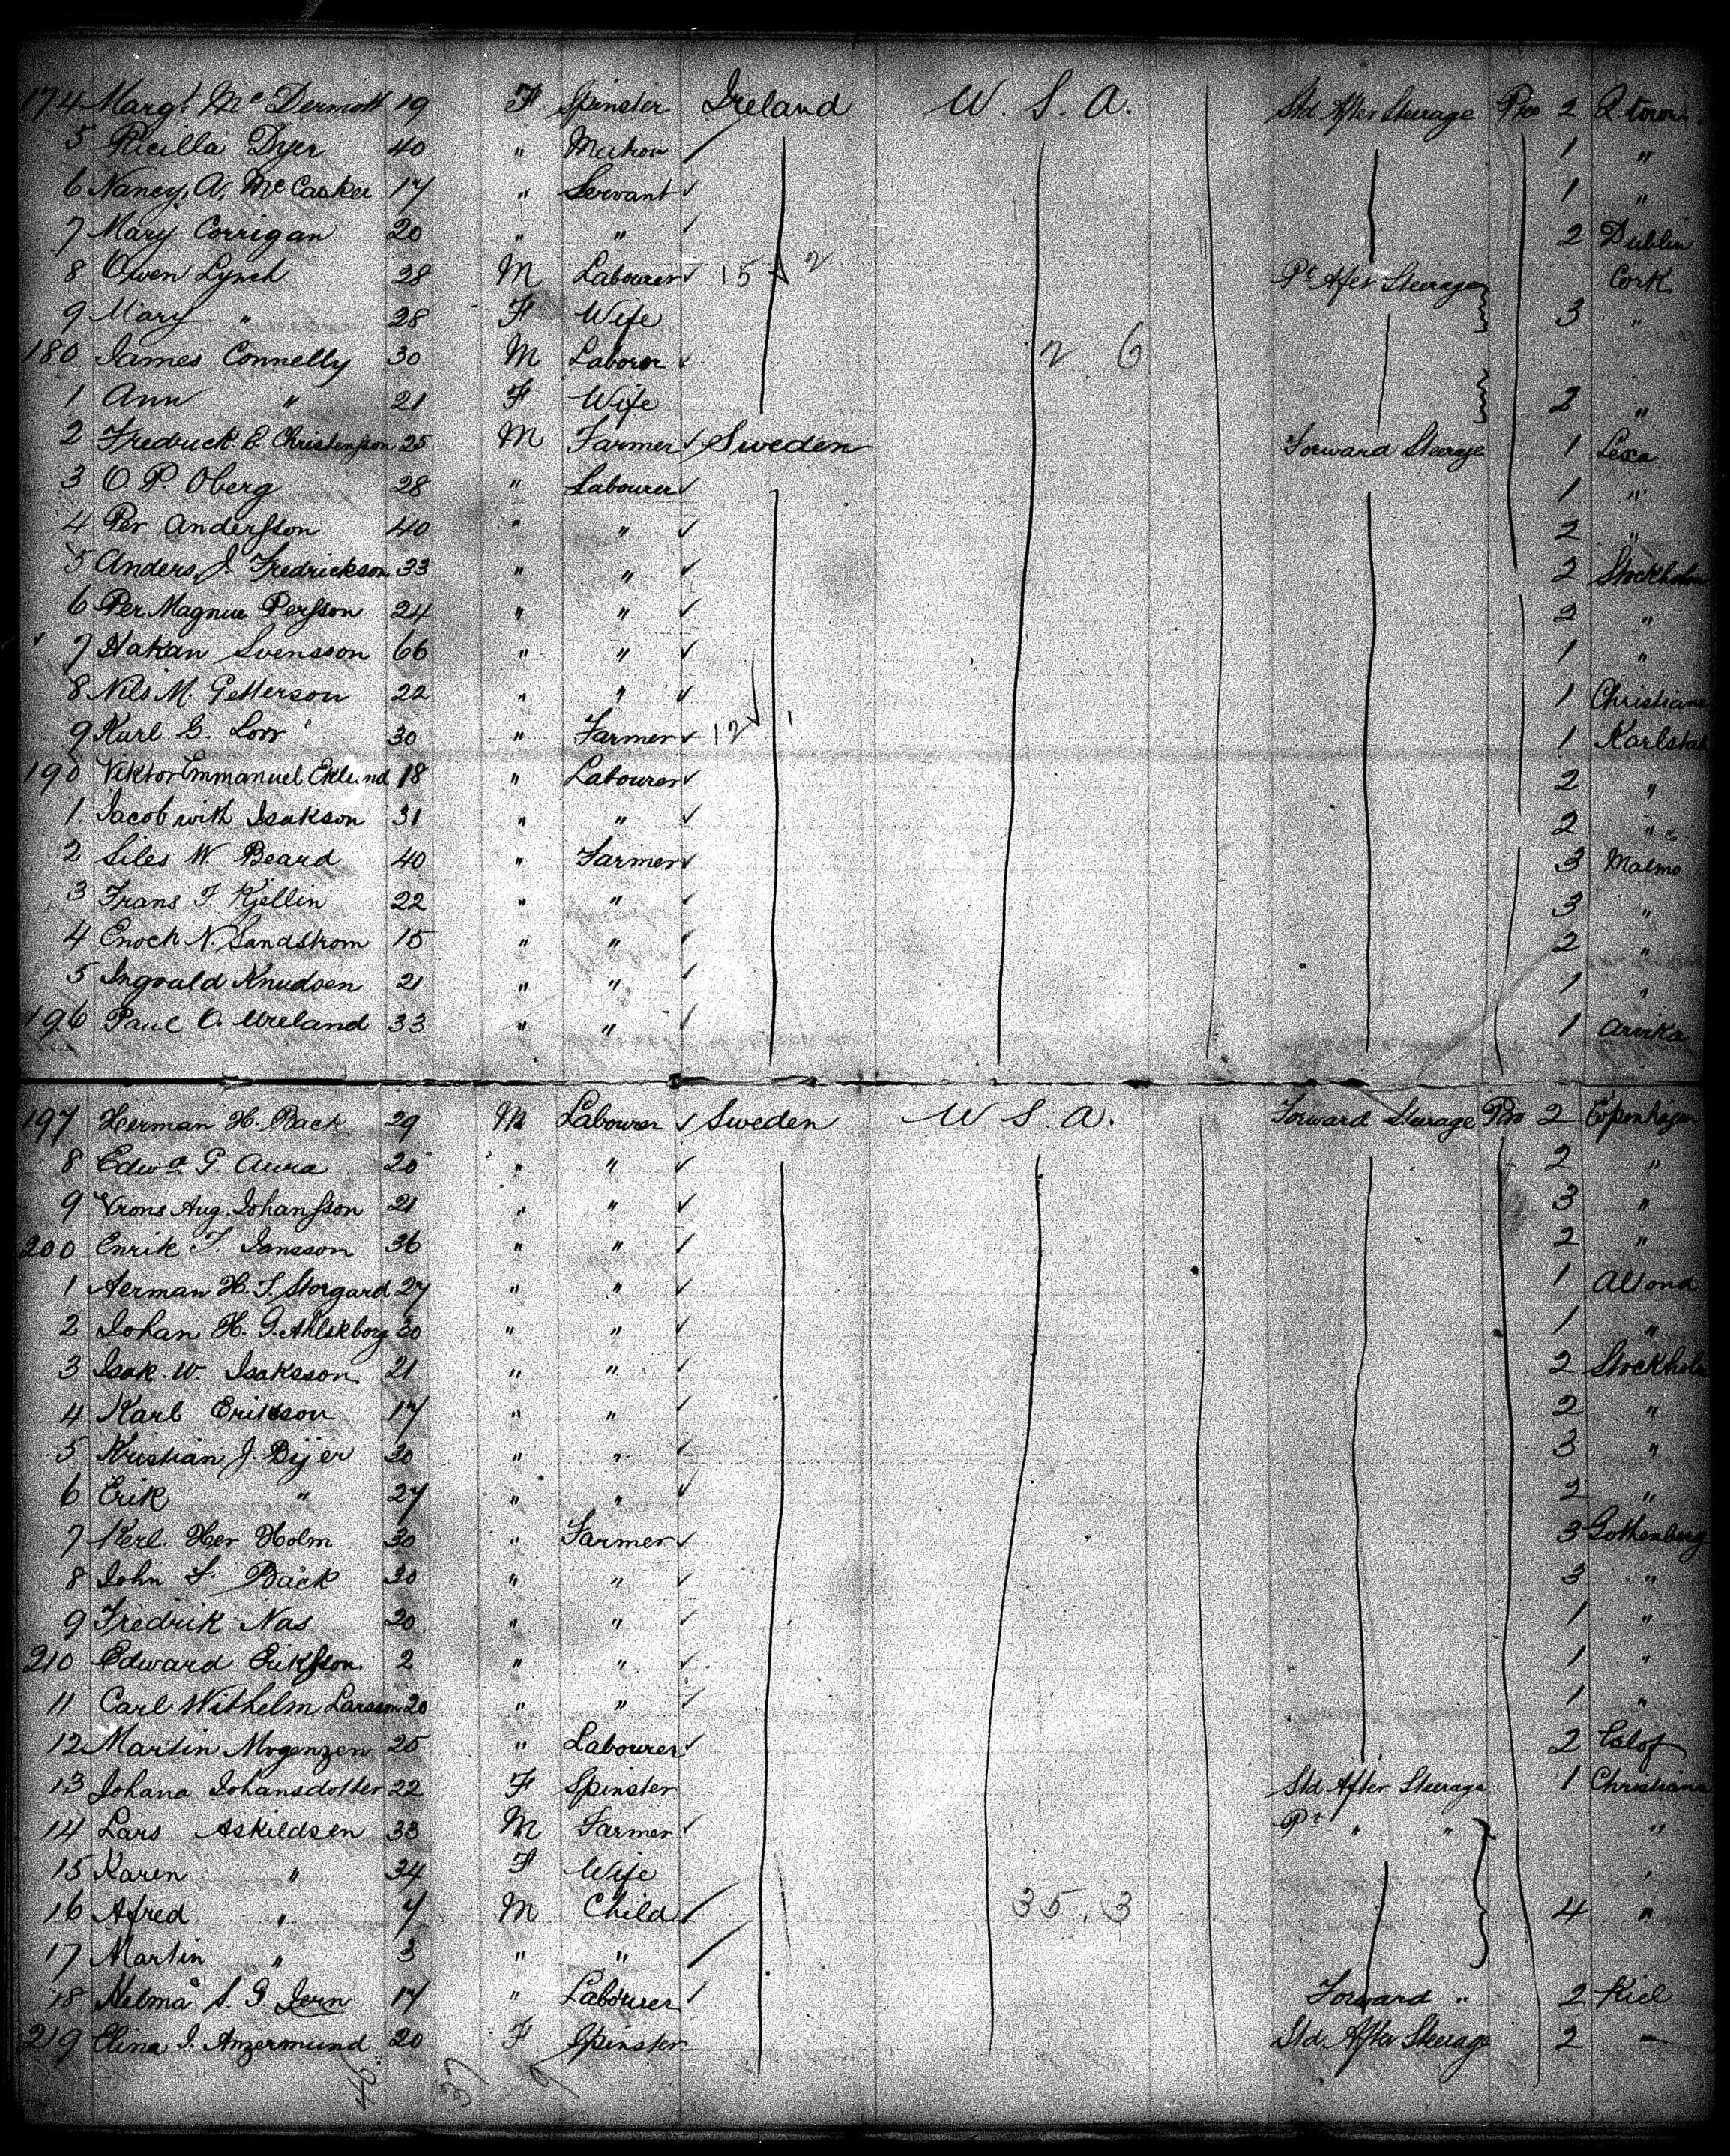 174 Margt. Mc Dermott 19 F Spinster Ireland U. S. A. Std After Steerage Pro 2 Q. town
5 Ricilla Dyer 40 " Matron 1 "
6 Nancy A. Mc Casker 17 " Servant 1 "
7 Mary Corrigan 20 " " 2 Dublin
8 Owen Lynch 28 M Labourer 15 2 Pt After Steerage Cork
9 Mary " 28 F Wife 3 "
180 James Connelly 30 M Laborer 2 6
1 Ann " 21 F Wife 2 "
2 Fredrick E. Christensson 25 M Farmer Sweden Forward Steerage 1 Lexa
3 O. P. Oberg 28 " Labourer 1 "
4 Per Andersson 40 " " 2 "
5 Anders J. Fredrickson 33 " " 2 Stockholm
6 Per Magnus Persson 24 " " 2 "
7 Hakan Svensson 66 " " 1 "
8 Nils M. Petterson 22 " " 1 Christiana
9 Karl G. Lorr 30 " Farmer 12 1 1 Karlstad
190 Viktor Emmanuel Eklund 18 " Labourer 2 "
1 Jacob with Isakson 31 " " 2 "
2 Siles W Beard 40 " Farmer 3 Malmo
3 Frans F Kjellin 22 " " 3 "
4 Enoch N. Sandstrom 15 " " 2 "
5 Ingvald Knudsen 21 " " 1 "
196 Paul O. Ureland 33 " " 1 Arvika
197 Herman H. Back 29 M Labourer Sweden U S. A. Forward Steerage Pro 2 Copenhagen
8 Edwd. G. Aura 20 " " 2 "
9 Vrons Aug. Johansson 21 " " 3 "
200 Enrik T. Jansson 36 " " 2 "
1 Aerman H. T. Storgard 27 " " 1 Altona
2 Johan H. G. Ahlskborg 30 " " 1 "
3 Isak. W. Isaksson 21 " " 2 Stockholm
4 Karl Erikson 17 " " 2 "
5 Kristian J. Bijer 20 " " 3 "
6 Erik " 27 " " 2 "
7 Kerl. Her Holm 30 " Farmer 3 Gothenberg
8 John S. Back 30 " " 3 "
9 Fredrik Nas 20 " " 1 "
210 Edward Eriksson 2 " " 1 "
11 Carl Withelm Larsson 20 " " 1 "
12 Martin Mogenzen 25 " Labourer 2 Eslof
13 Johana Johansdotter 22 F Spinster Std After Steerage 1 Christiana
14 Lars Askildsen 33 M Farmer Pt " " "
15 Karen " 34 F Wife "
16 Afred " 7 M Child 35. 3 4 "
17 Martin " 3 " "
18 Helma S. G. Jern 17 " Labourer Forward " 2 Kiel
219 Elina J. Anzermund 20 F Spinster Std After Steerage 2 —
46 37 9